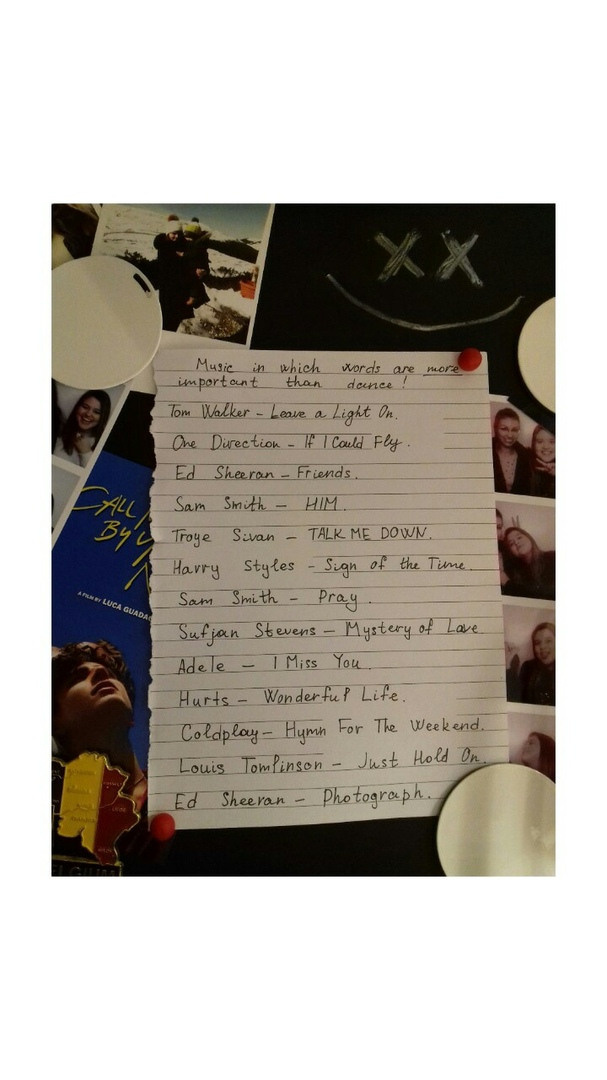 XX
Music in which words are more
important than dance!
Tom Walker – Leave a Light On.
One Direction – If I Could Fly.
Ed Sheeran – Friends.
Sam Smith – HIM.
Troye Sivan – TALK ME DOWN.
Harry Styles – Sign of the Time.
Sam Smith – Pray.
Sufjan Stevens – Mystery of Love
Adele – I Miss You.
Hurts – Wonderful Life.
Coldplay – Hymn For The Weekend.
Louis Tomlinson – Just Hold On.
Ed Sheeran – Photograph.
CALL
BY
A FILM BY LUCA